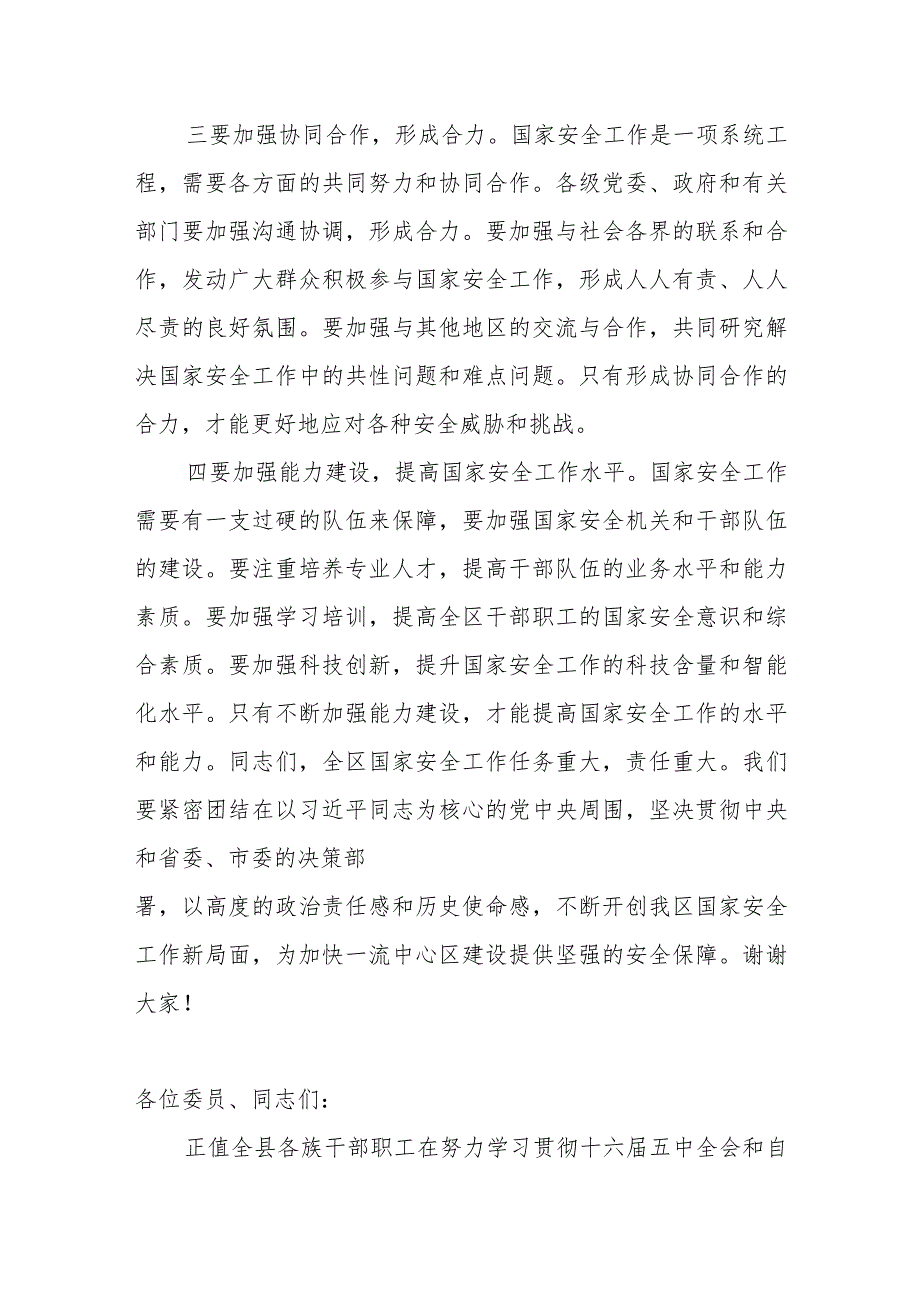 三要加强协同合作，形成合力。国家安全工作是一项系统工
程，需要各方面的共同努力和协同合作。各级党委、政府和有关
部门要加强沟通协调，形成合力。要加强与社会各界的联系和合
作，发动广大群众积极参与国家安全工作，形成人人有责、人人
尽责的良好氛围。要加强与其他地区的交流与合作，共同研究解
决国家安全工作中的共性问题和难点问题。只有形成协同合作的
合力，才能更好地应对各种安全威胁和挑战。
四要加强能力建设，提高国家安全工作水平。国家安全工作
需要有一支过硬的队伍来保障，要加强国家安全机关和干部队伍
的建设。要注重培养专业人才，提高干部队伍的业务水平和能力
素质。要加强学习培训，提高全区干部职工的国家安全意识和综
合素质。要加强科技创新，提升国家安全工作的科技含量和智能
化水平。只有不断加强能力建设，才能提高国家安全工作的水平
和能力。同志们，全区国家安全工作任务重大，责任重大。我们
要紧密团结在以习近平同志为核心的党中央周围，坚决贯彻中央
和省委、市委的决策部
署，以高度的政治责任感和历史使命感，不断开创我区国家安全
工作新局面，为加快一流中心区建设提供坚强的安全保障。谢谢
大家！
各位委员、同志们：
正值全县各族干部职工在努力学习贯彻十六届五中全会和自